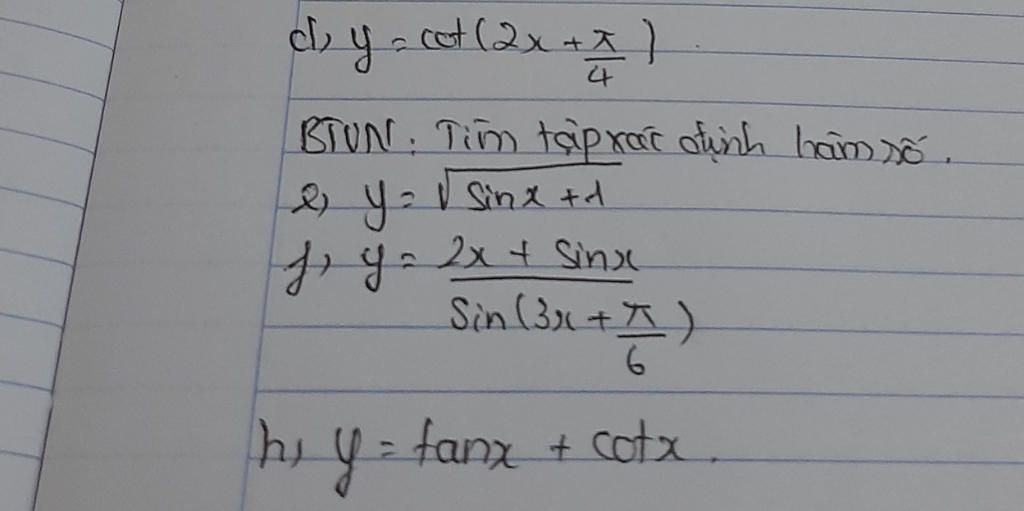 d, y = cot(2x + π/4).
BTVN: Tìm tập xác định hàm số.
e, y = √(sinx + 1)
f, y = (2x + sinx)/(sin(3x + π/6))
h, y = tanx + cotx.